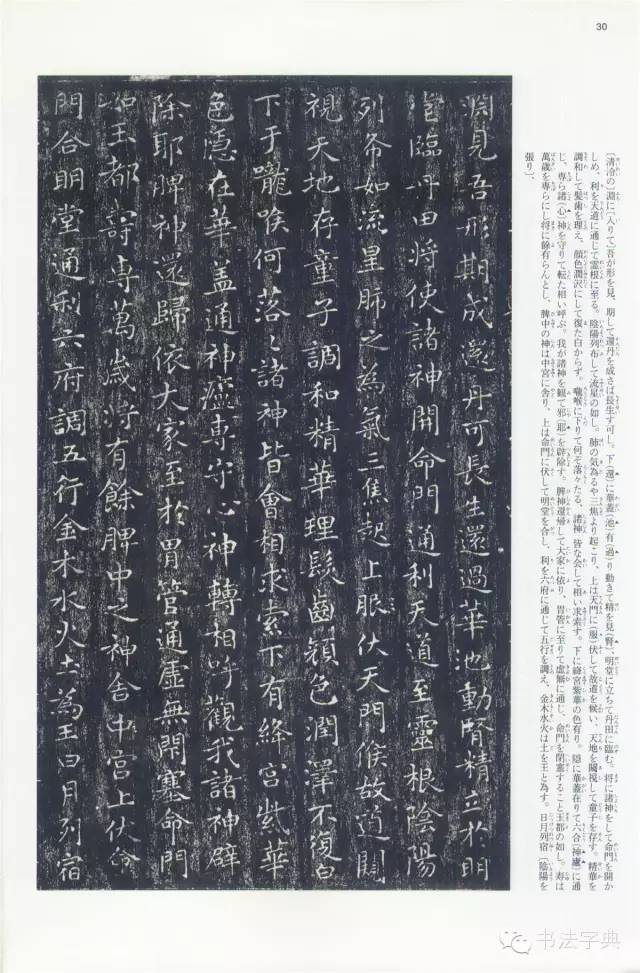 30
〔清冷の〕淵に〔入りて〕吾が形を見、期して還丹を成さば長生す可し。下(還)に華蓋(池)有(過)り動きて精を見(腎)、明堂に立ちて丹田に臨む。将に諸神をして命門を開か
しめ、利を天道に通じて霊根に至る。陰陽列布して流星の如し。肺の気為るや三焦より起こり、上は天門に(服)伏して故道を候い、天地を闚視して童子を存す。精華を
調和して髪歯を理え、顔色潤沢にして復た白からず。嚨喉に下りて何ぞ落々たる、諸神 皆な会して相い求索す。下に絳宮紫華の色有り。隠に華蓋在りて六合(神廬)に通
じ、専ら諸(心)神を守りて転た相い呼ぶ。我が諸神を観て邪(耶)を辟除す。脾神還帰して大家に依り、胃管に至りて虚無に通じ、命門を閉塞すること玉都の如し。寿は
萬歳を専らにし将に餘有らんとし、脾中の神は中宮に舎り、上は命門に伏して明堂を合し、利を六府に通じて五行を調え、金木水火は土を王と為す。日月列宿〔陰陽を
張り〕、
淵見吾形期成還丹可長生還過華池動腎精立於明
堂臨丹田将使諸神開命門通利天道至靈根陰陽
列布如流星肺之為氣三焦起上服伏天門候故道闚
視天地存童子調和精華理髮齒顏色潤澤不復白
下于嚨喉何落々諸神皆會相求索下有絳宮紫華
色隱在華蓋通神廬專守心神轉相呼觀我諸神辟
除耶脾神還歸依大家至於胃管通虛無閉塞命門
如玉都壽專萬歲將有餘脾中之神舍中宮上伏命
門合明堂通利六府調五行金木水火土為王日月列宿
书法字典